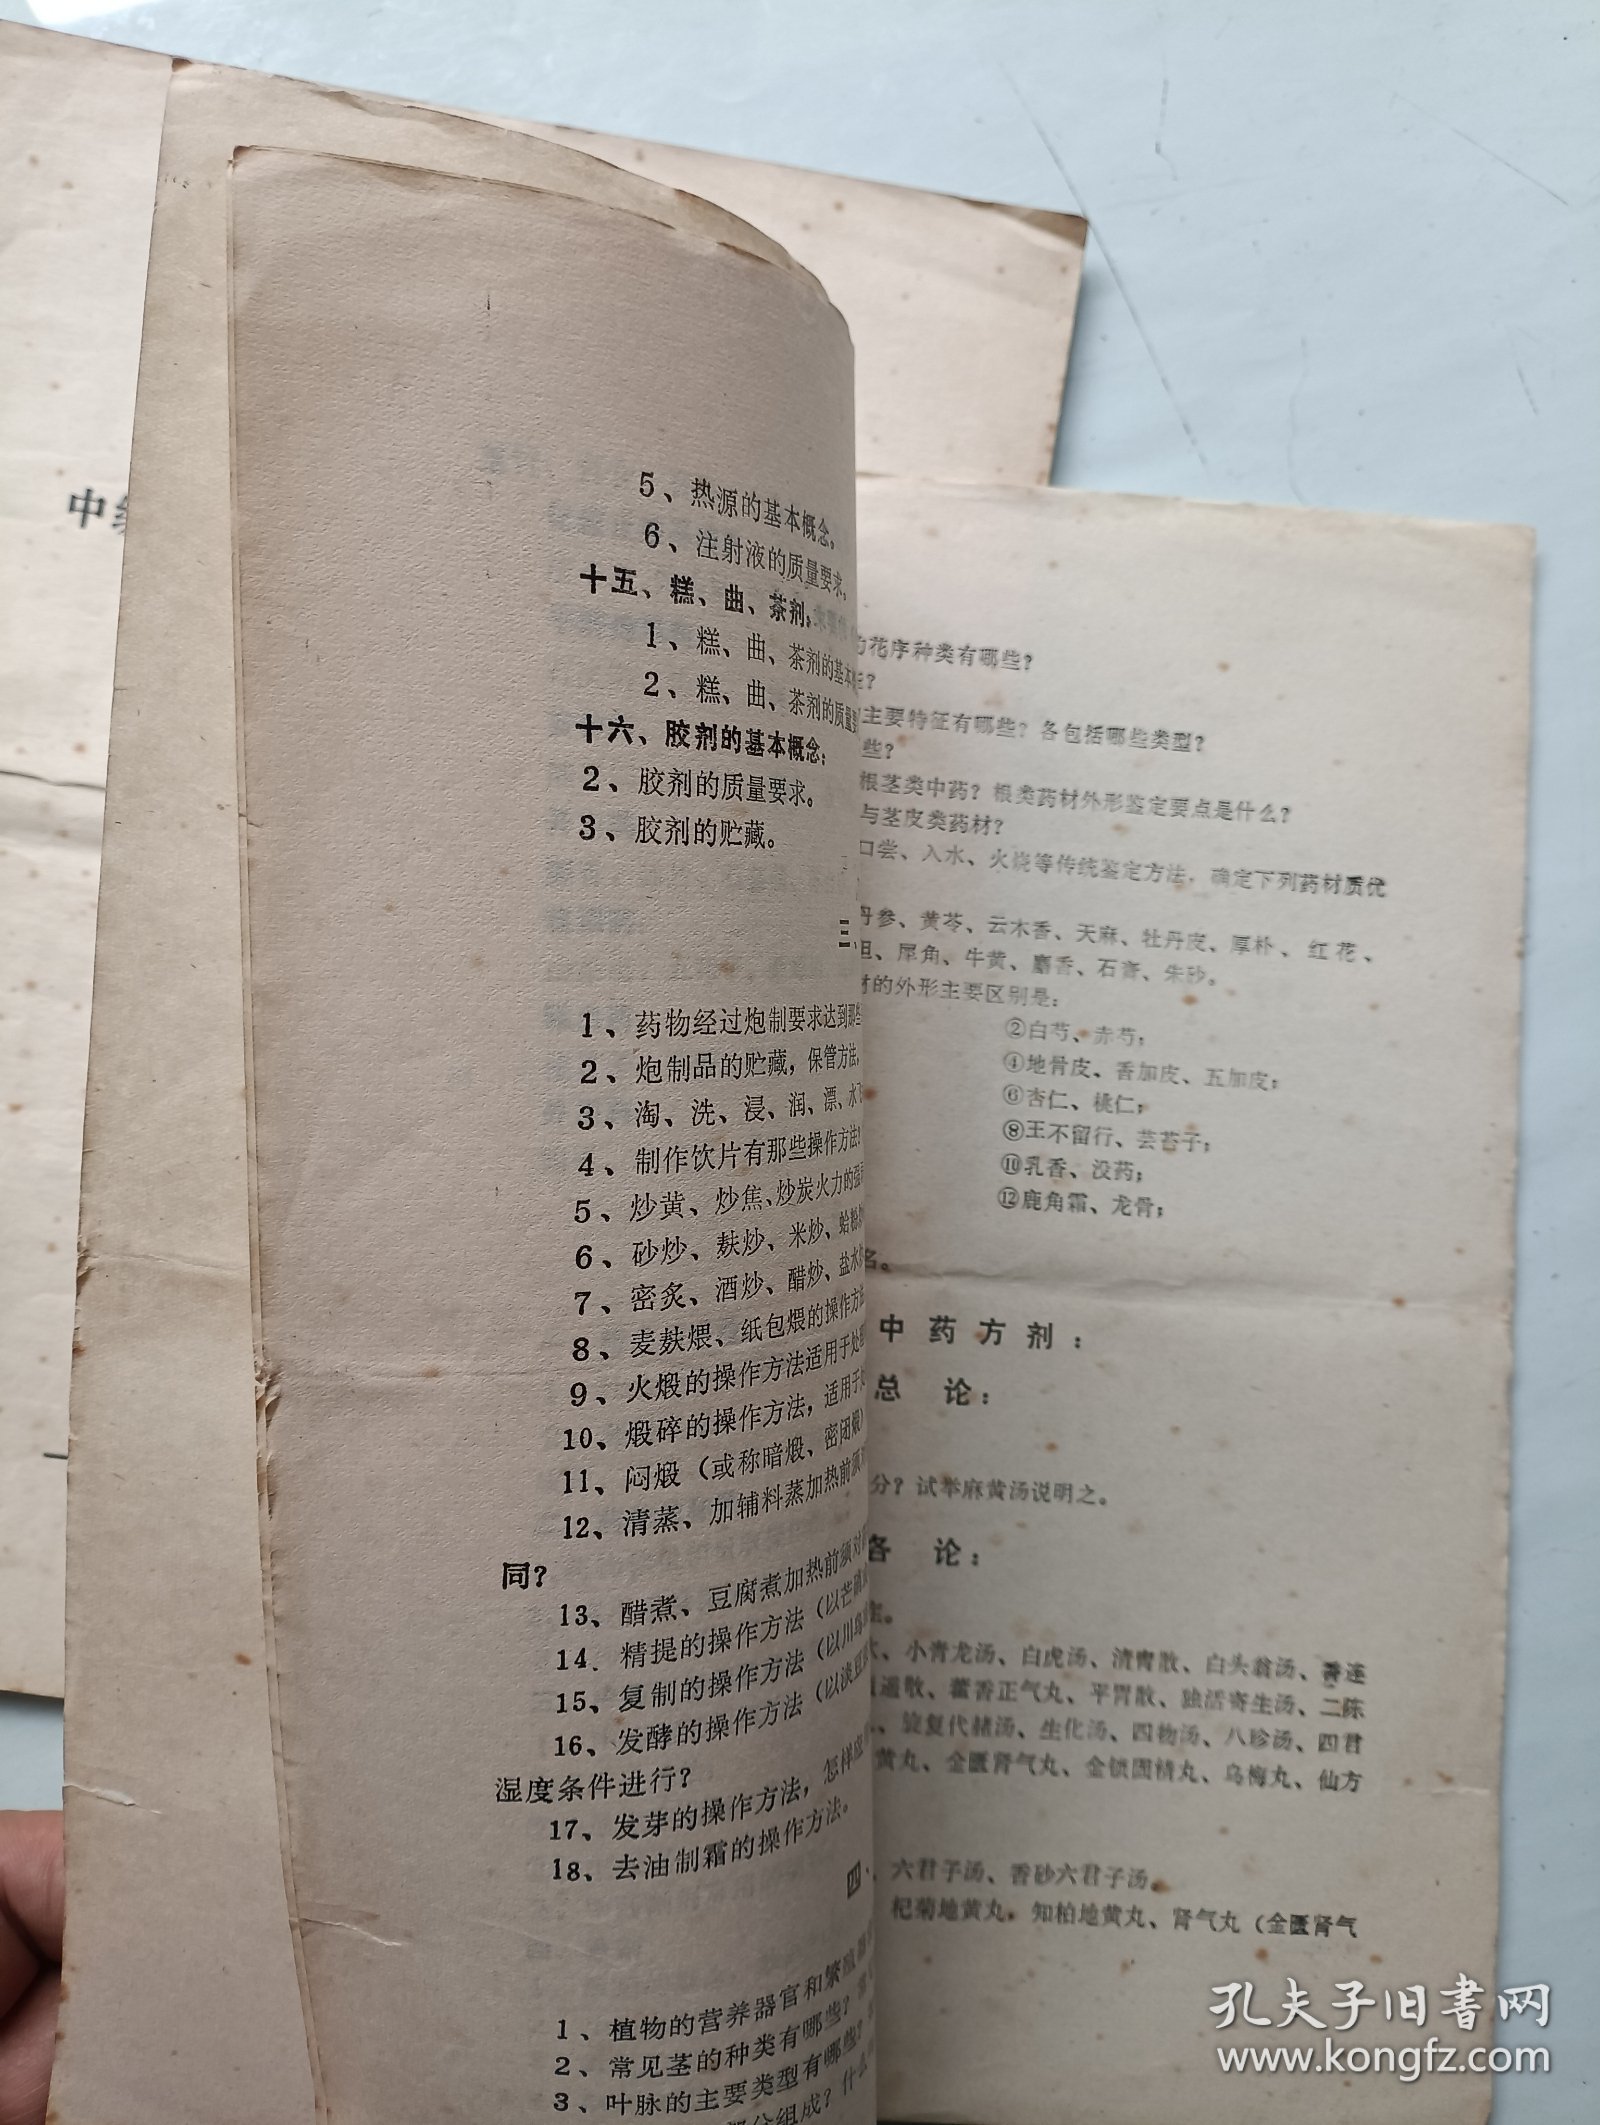 中
5、热源的基本概念。
6、注射液的质量要求。
十五、糕、曲、茶剂：
1、糕、曲、茶剂的基本
2、糕、曲、茶剂的质量要
十六、胶剂的基本概念：
2、胶剂的质量要求。
3、胶剂的贮藏。
三、
1、药物经过炮制要求达到那些
2、炮制品的贮藏，保管方法，
3、淘、洗、浸、润、漂、水飞
4、制作饮片有那些操作方法？
5、炒黄、炒焦、炒炭火力的强
6、砂炒、麸炒、米炒、蛤粉
7、密炙、酒炒、醋炒、盐水
8、麦麸煨、纸包煨的操作方法
9、火煅的操作方法适用于处理
10、煅碎的操作方法，适用于
11、闷煅（或称暗煅、密闭煅）
12、清蒸、加辅料蒸加热前须
同？
13、醋煮、豆腐煮加热前须对
14．精提的操作方法（以芒硝
15、复制的操作方法（以川乌
16、发酵的操作方法（以淡豆
湿度条件进行？
17、发芽的操作方法，怎样应
18、去油制霜的操作方法。
四、
1、植物的营养器官和繁殖
2、常见茎的种类有哪些？
3、叶脉的主要类型有哪些？
部分组成？什么
花序种类有哪些？
？
主要特征有哪些？各包括哪些类型？
些？
根茎类中药？根类药材外形鉴定要点是什么？
与茎皮类药材？
口尝、入水、火烧等传统鉴定方法，确定下列药材质优
丹参、黄芩、云木香、天麻、牡丹皮、厚朴、红花、
、犀角、牛黄、麝香、石膏、朱砂。
材的外形主要区别是：
②白芍、赤芍；
④地骨皮、香加皮、五加皮；
⑥杏仁、桃仁；
⑧王不留行、芸苔子；
⑩乳香、没药；
⑫鹿角霜、龙骨；
名。
中药方剂：
总 论：
分？试举麻黄汤说明之。
各 论：
、小青龙汤、白虎汤、清胃散、白头翁汤、香连
逍遥散、藿香正气丸、平胃散、独活寄生汤、二陈
、旋复代赭汤、生化汤、四物汤、八珍汤、四君
黄丸、金匮肾气丸、金锁固精丸、乌梅丸、仙方
六君子汤、香砂六君子汤。
杞菊地黄丸，知柏地黄丸、肾气丸（金匮肾气
孔夫子旧书网
www.kongfz.com